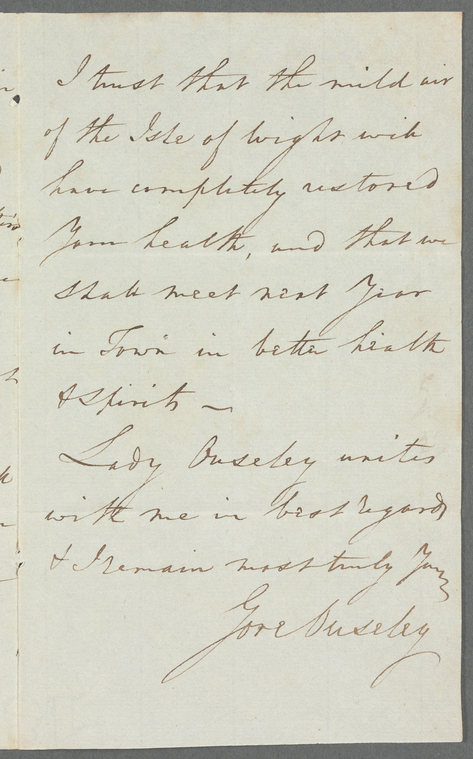 I trust that the mild air
of the Isle of Wight will
have completely restored
Your health, and that we
shall meet next Year
in Town in better health
& spirits —
Lady Ouseley unites
with me in best regards
& I remain most truly Yours
Gore Ouseley